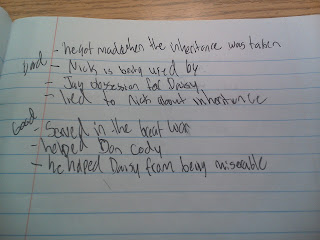 Bad
- he got mad when the inheritance was taken
- Nick is being used by
- Jay obsession for Daisy
- lied to Nick about inheritence
Good
- Served in the Great War
- helped Dan Cody
- he helped Daisy from being miserable